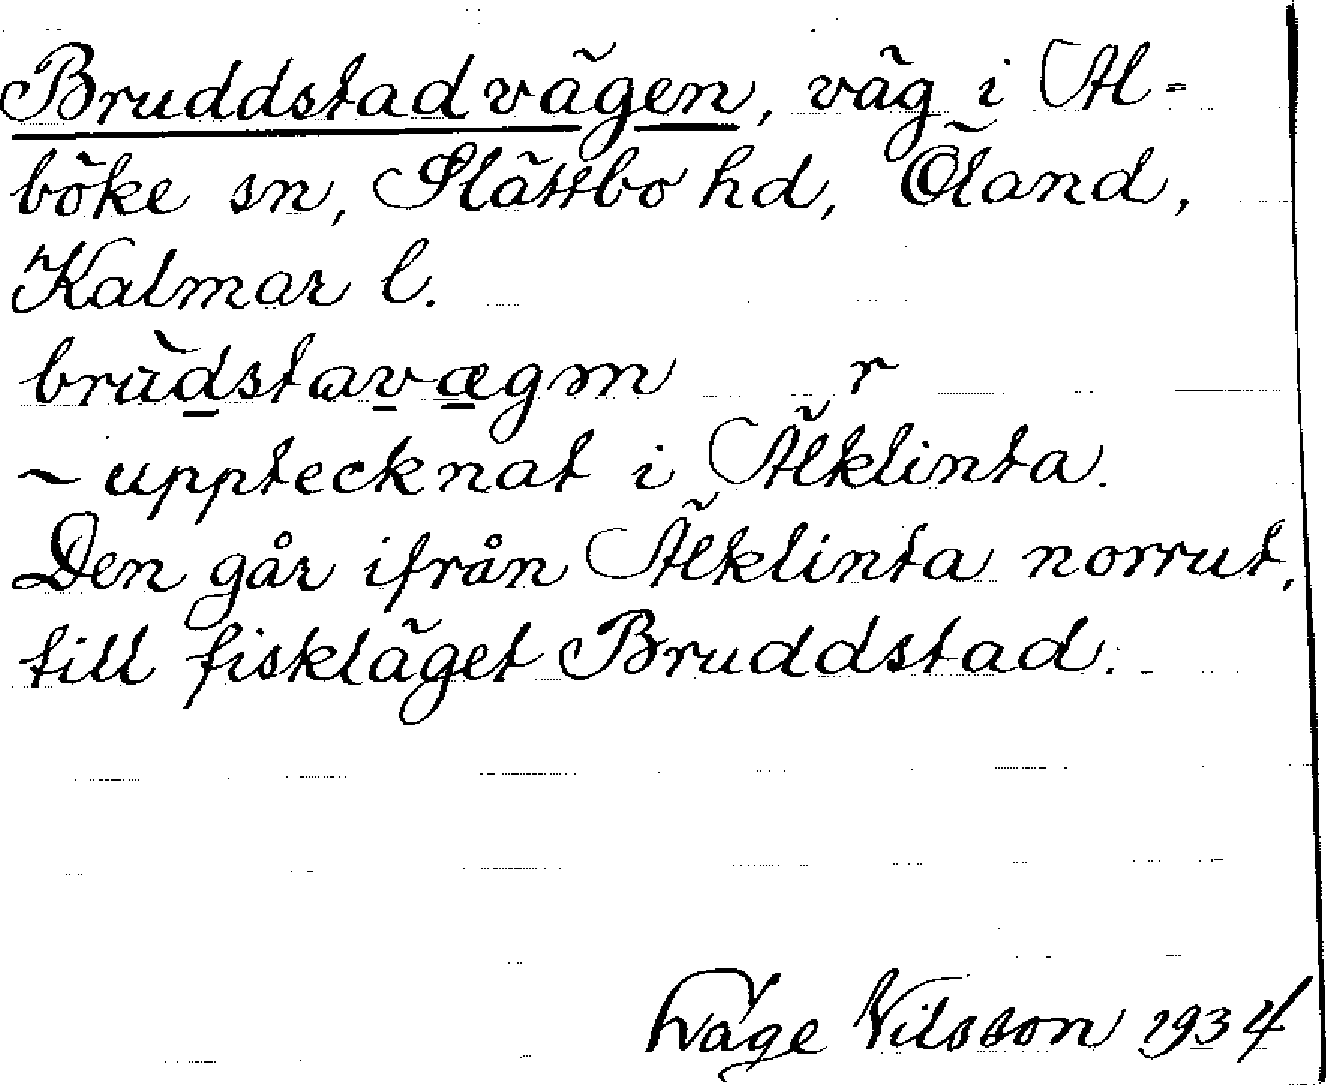 Bruddstadvägen, väg i Al-
böke sn, Slättbo hd, Öland,
Kalmar l.
brùdstavægm r
~ upptecknat i Älklinta.
Den går ifrån Älklinta norrut,
till fiskläget Bruddstad.
Nilsson 1934